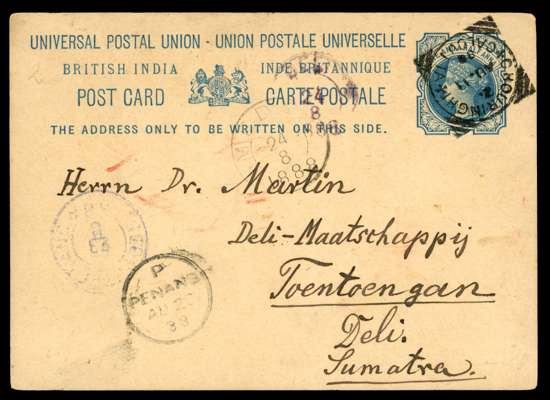 UNIVERSAL POSTAL UNION - UNION POSTALE UNIVERSELLE
BRITISH INDIA INDE BRITANNIQUE
POST CARD CARTE POSTALE
THE ADDRESS ONLY TO BE WRITTEN ON THIS SIDE.
Herrn Dr. Martin
Deli-Maatschappij
Toentoengan
Deli.
Sumatra.
P
PENANG
88
24
8